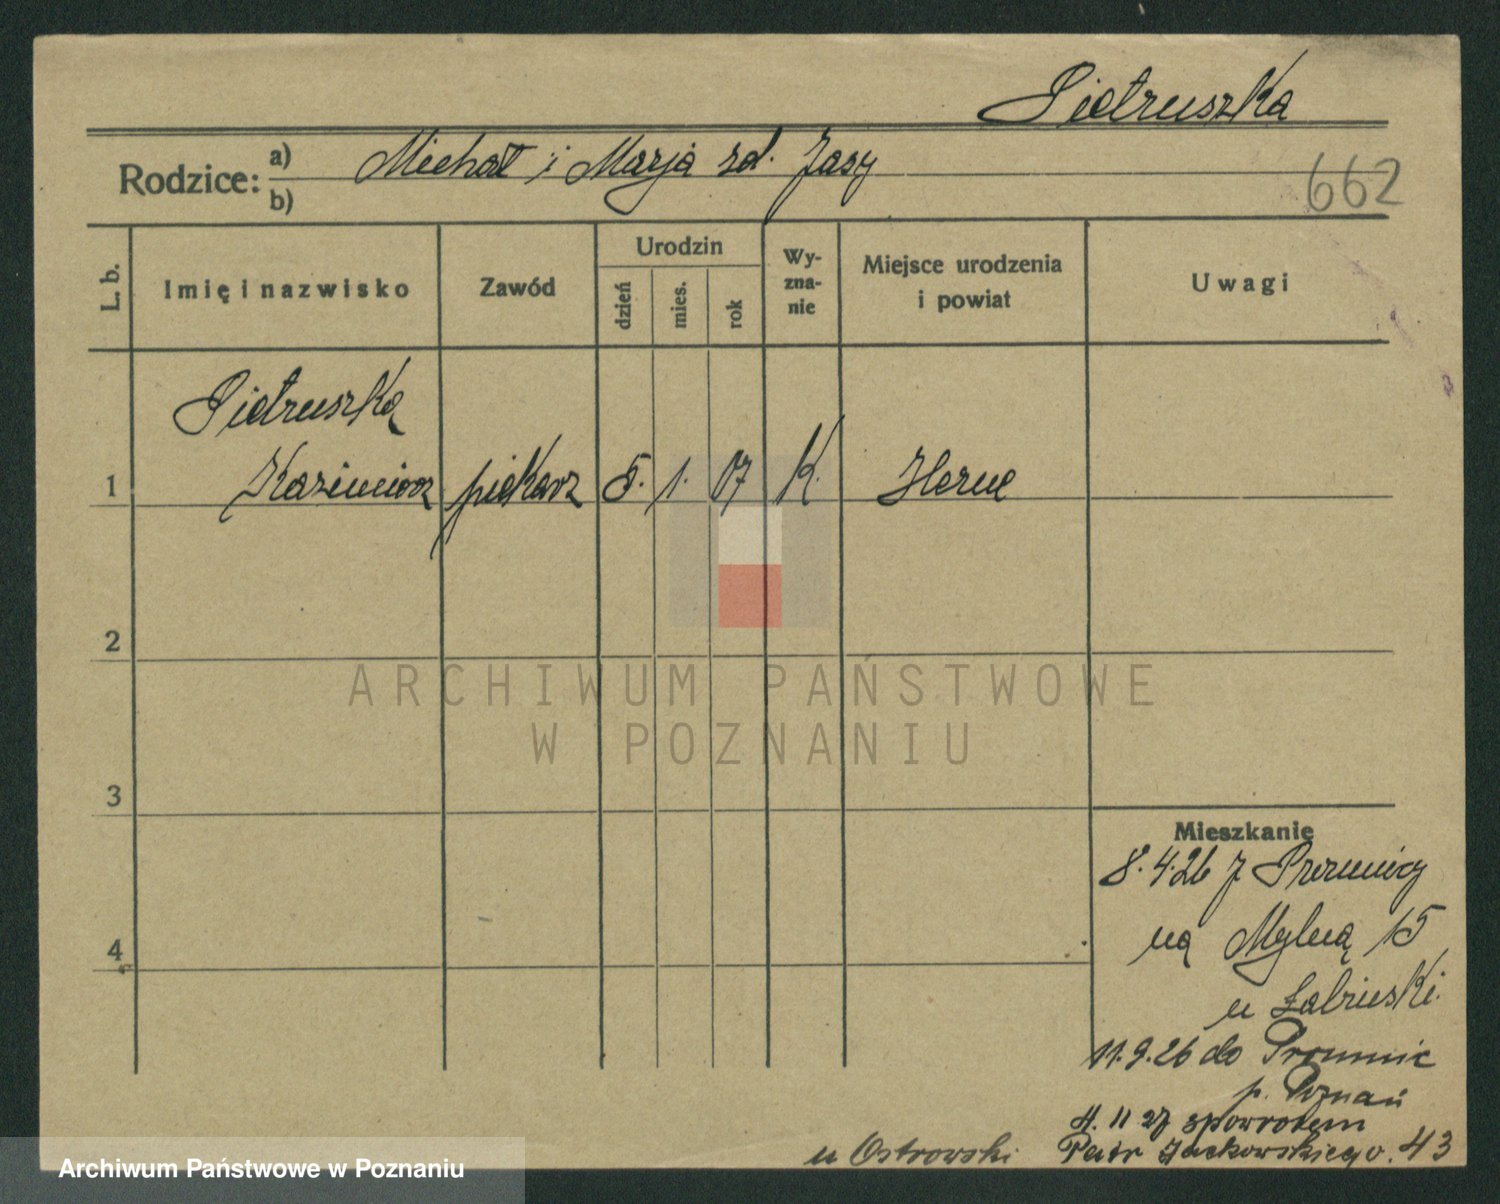 Pietruszka
Rodzice: a) Michał i Marja zd. Jasy
b)
662
L. b.
Imię i nazwisko
Zawód
Urodzin
dzień
mies.
rok
Wy-
zna-
nie
Miejsce urodzenia
i powiat
Uwagi
Pietruszka
1 Kazimierz piekarz 5. 1. 07 K. Herne
2
3
4
ARCHIWUM PAŃSTWOWE
W POZNANIU
Mieszkanie
8.4.26 z
na Mylną 15
u Łabiński.
11.9.26 do Promnic
p. Poznań
4. 11 27 spowrotem
u Ostrowski Patr Jackowskiego. 43
Archiwum Państwowe w Poznaniu